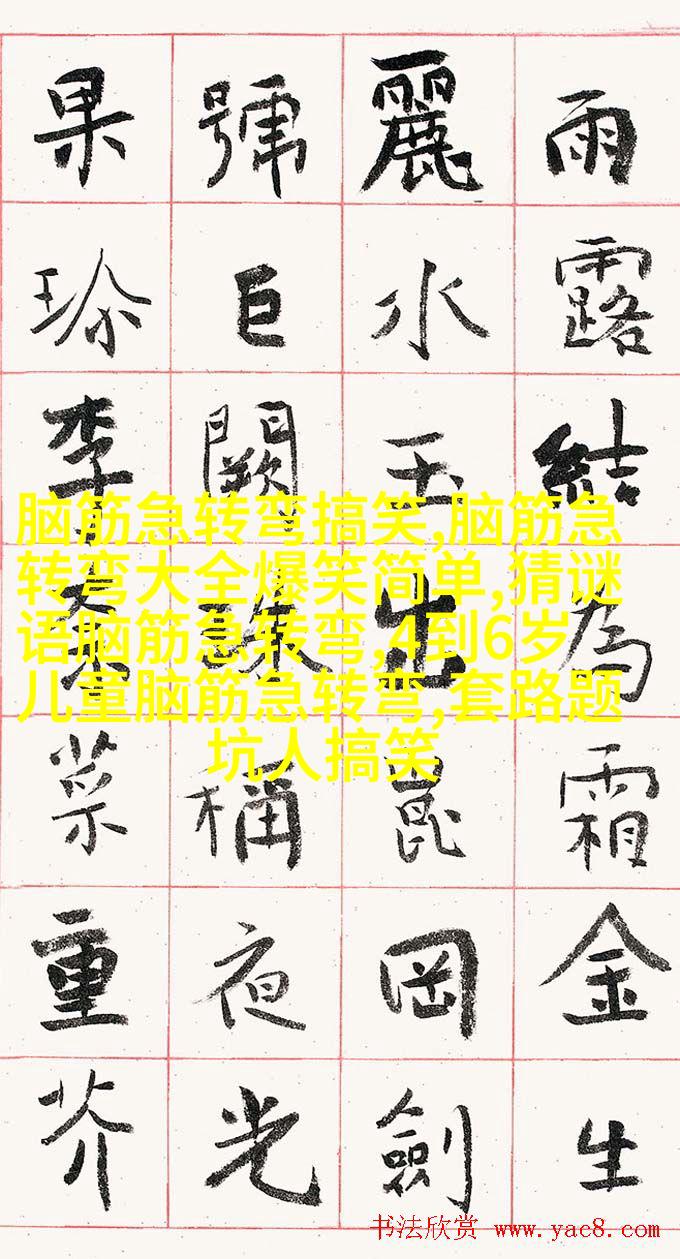 雨露結為霜金生
麗水玉出崑岡劍
號巨闕珠稱夜光
果珍李柰菜重芥
脑筋急转弯搞笑,脑筋急
转弯大全爆笑简单,猜谜
语脑筋急转弯,4到6岁
儿童脑筋急转弯,套路题
坑人搞笑
书法欣赏 www.yac8.com